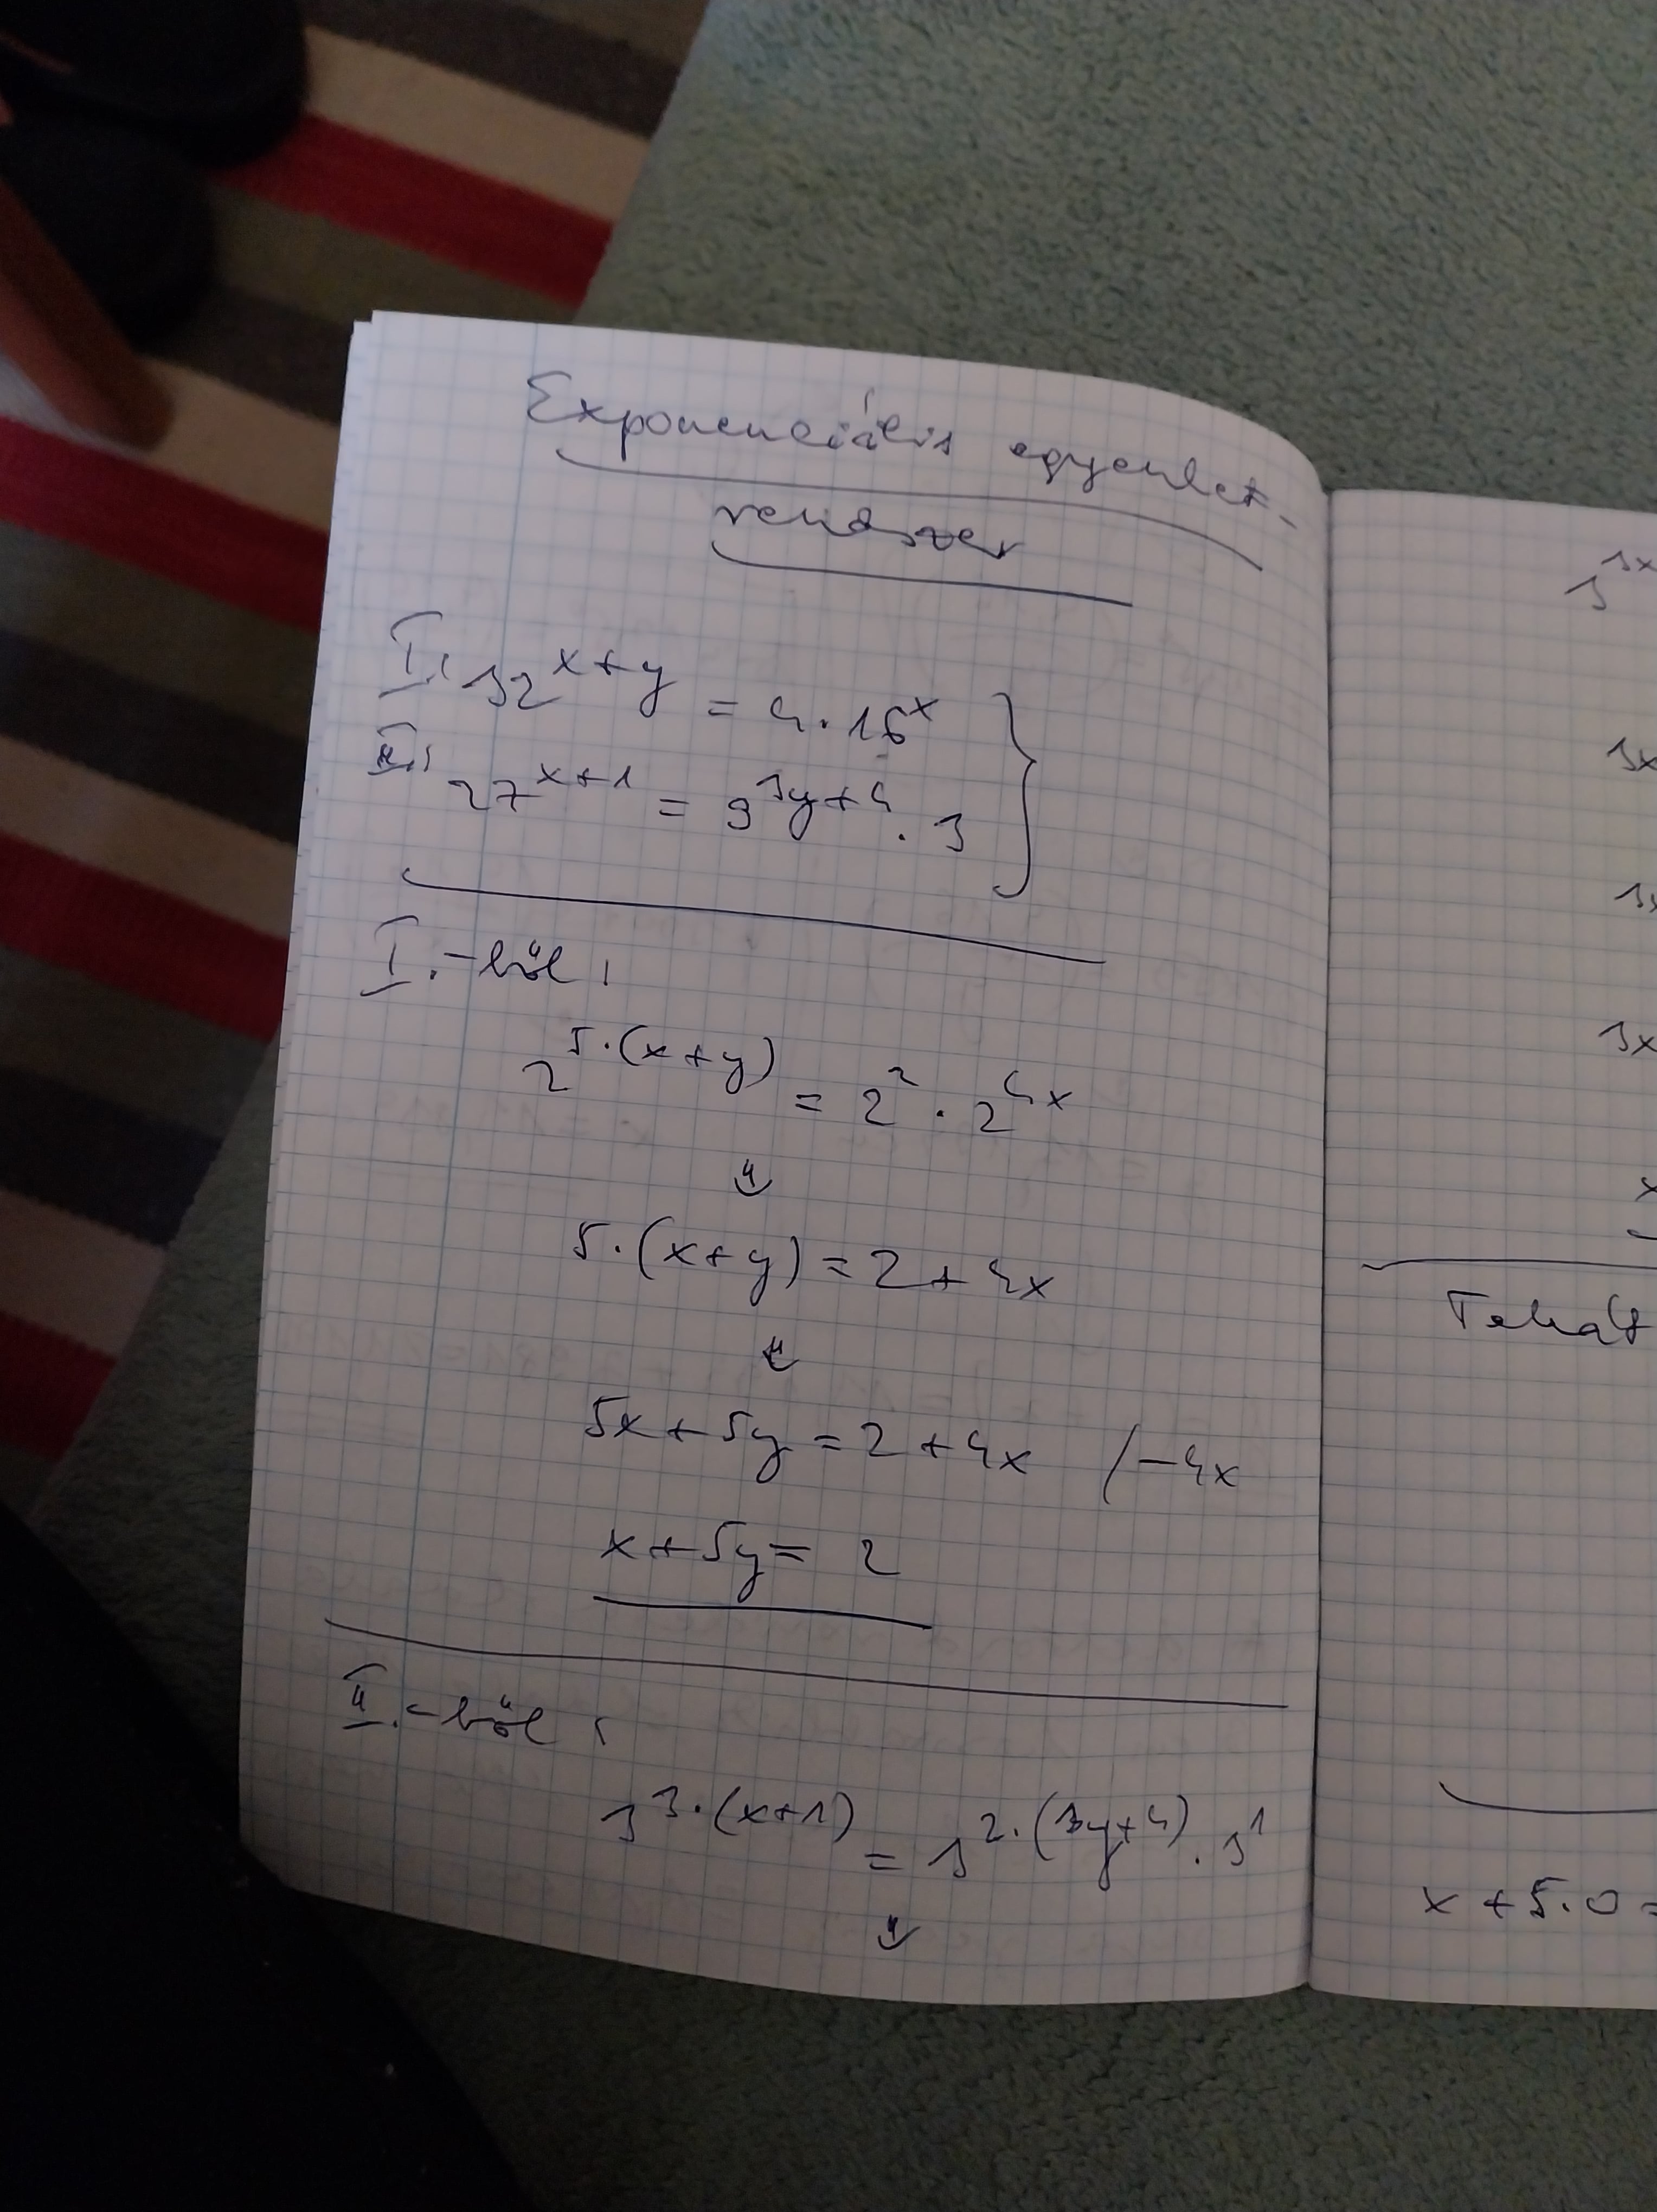 Exponenciális egyenlet-
rendszer
I.: 32^(x+y) = 4·16^x
II.: 27^(x+1) = 9^(3y+4)·3
I.-ből:
2^(5·(x+y)) = 2^2·2^(4x)
⇓
5·(x+y) = 2+4x
⇓
5x+5y = 2+4x /-4x
x+5y = 2
II.-ből:
3^(3·(x+1)) = 3^(2·(3y+4))·3^1
⇓
3^3x
3x
3x
3x
x
Tehát
x+5·0=